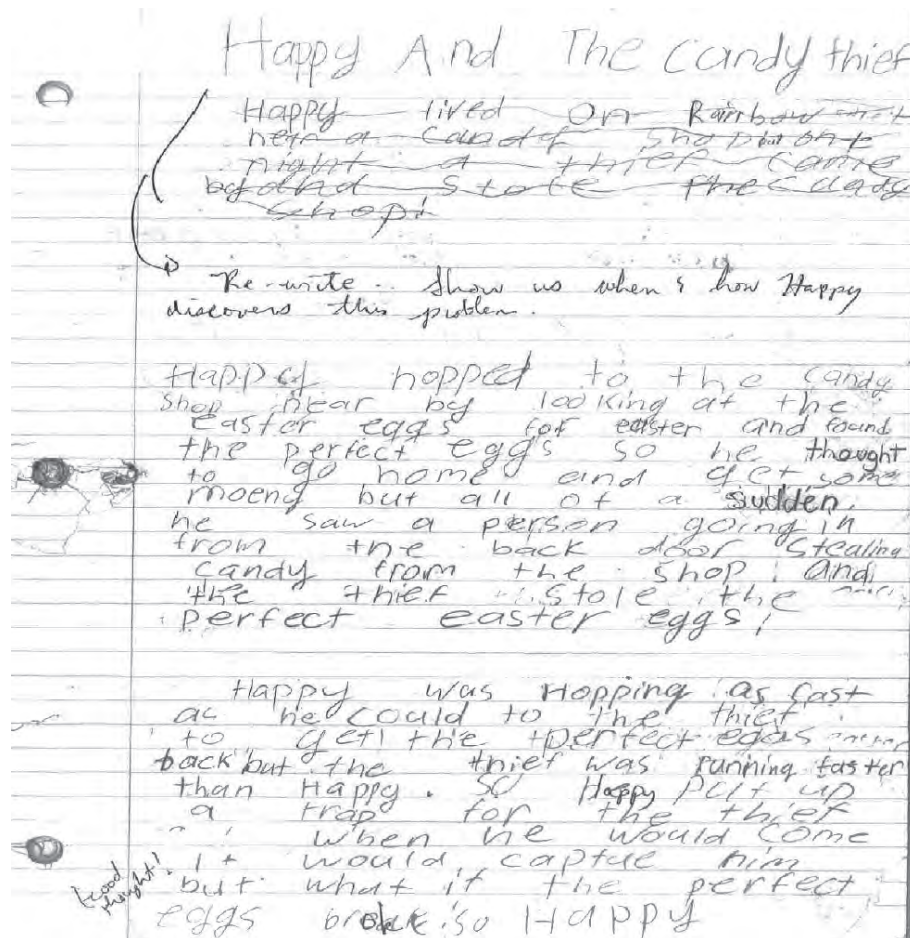 Happy And The Candy thief
Happy lived On Rainbow
near a candy shop but one
night a thief came
by and stole the candy
schop
Re-write.. Show us when & how Happy
discovers this problem.
Happy hopped to the candy
shop near by looking at the
easter eggs for easter and found
the perfect eggs so he thought
to go home and get some
moeny but all of a sudden
he saw a person going in
from the back door stealing
candy from the shop and
the thief stole the
perfect easter eggs!
Happy was Hopping as fast
as he could to the thief
to get the perfect eggs
back but the thief was running faster
than Happy. So Happy Put up
a trap for the thief
when he would come
It would captue him
Good thought!
but what if the perfect
eggs broke so Happy